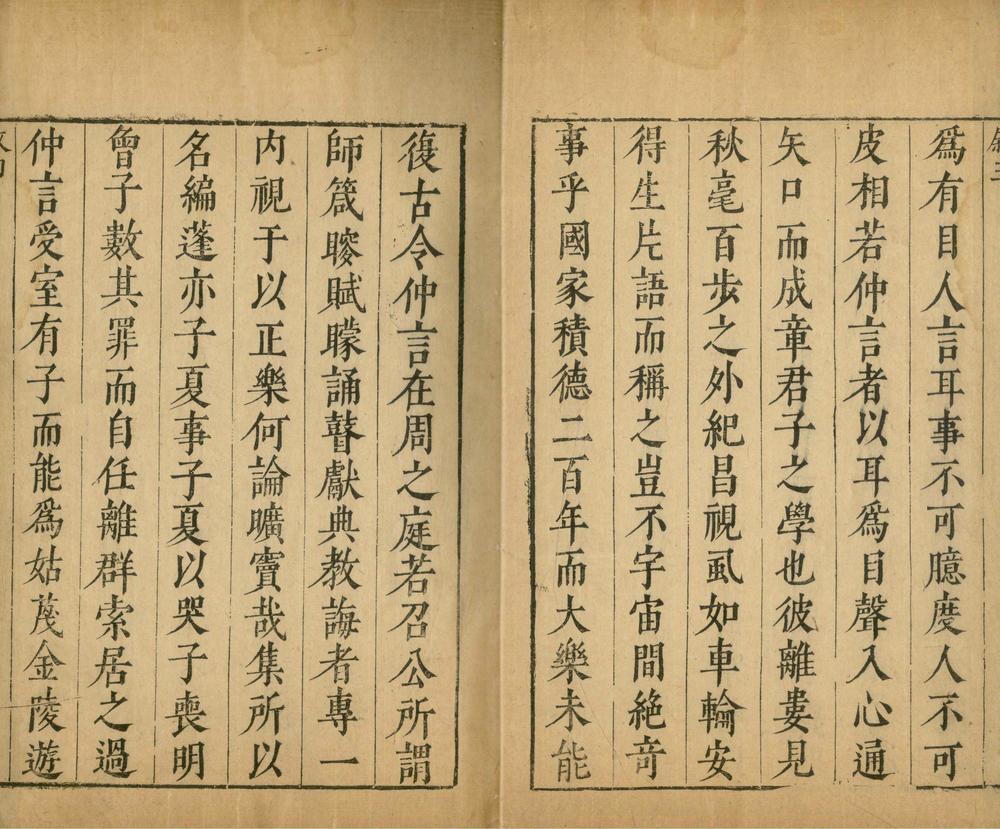 爲有目人言耳事不可臆度人不可
皮相若仲言者以耳爲目聲入心通
矢口而成章君子之學也彼離婁見
秋毫百步之外紀昌視虱如車輪安
得生片語而稱之豈不字宙間絶奇
事乎國家積德二百年而大樂未能
復古令仲言在周之庭若召公所謂
師箴瞍賦矇誦瞽獻典教誨者專一
内視于以正樂何論曠竇哉集所以
名編蓬亦子夏事子夏以哭子喪明
曾子數其罪而自任離群索居之過
仲言受室有子而能爲姑蔑金陵遊